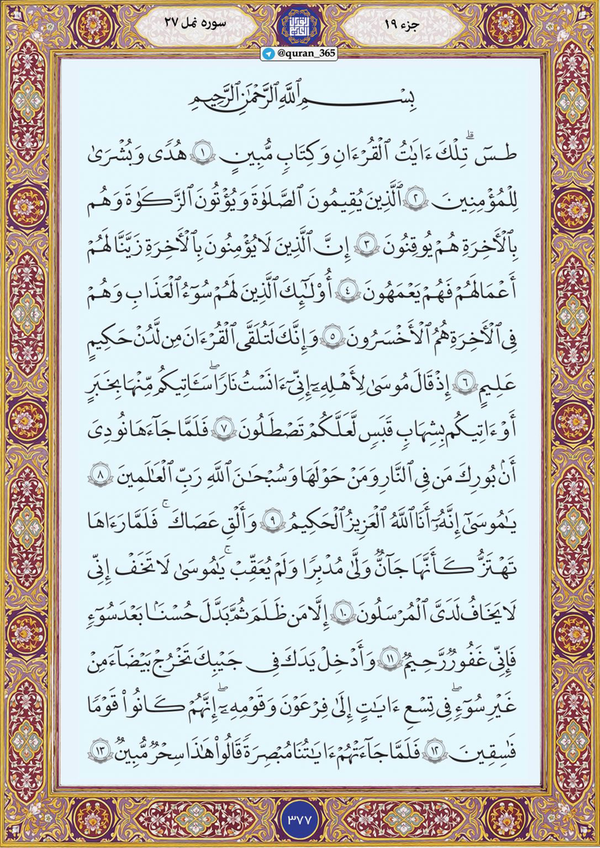 جزء ۱۹
سوره نمل ۲۷
@quran_365
بِسْمِ ٱللَّهِ ٱلرَّحْمَٰنِ ٱلرَّحِيمِ
طسٓ ۚ تِلْكَ ءَايَٰتُ ٱلْقُرْءَانِ وَكِتَابٍ مُّبِينٍ ۱ هُدًى وَبُشْرَىٰ
لِلْمُؤْمِنِينَ ۲ ٱلَّذِينَ يُقِيمُونَ ٱلصَّلَوٰةَ وَيُؤْتُونَ ٱلزَّكَوٰةَ وَهُم
بِٱلْءَاخِرَةِ هُمْ يُوقِنُونَ ۳ إِنَّ ٱلَّذِينَ لَا يُؤْمِنُونَ بِٱلْءَاخِرَةِ زَيَّنَّا لَهُمْ
أَعْمَٰلَهُمْ فَهُمْ يَعْمَهُونَ ۴ أُوْلَٰٓئِكَ ٱلَّذِينَ لَهُمْ سُوٓءُ ٱلْعَذَابِ وَهُمْ
فِى ٱلْءَاخِرَةِ هُمُ ٱلْأَخْسَرُونَ ۵ وَإِنَّكَ لَتُلَقَّى ٱلْقُرْءَانَ مِن لَّدُنْ حَكِيمٍ
عَلِيمٍ ۶ إِذْ قَالَ مُوسَىٰ لِأَهْلِهِۦٓ إِنِّىٓ ءَانَسْتُ نَارًا سَـَٔاتِيكُم مِّنْهَا بِخَبَرٍ
أَوْ ءَاتِيكُم بِشِهَابٍ قَبَسٍ لَّعَلَّكُمْ تَصْطَلُونَ ۷ فَلَمَّا جَآءَهَا نُودِىَ
أَنۢ بُورِكَ مَن فِى ٱلنَّارِ وَمَنْ حَوْلَهَا وَسُبْحَٰنَ ٱللَّهِ رَبِّ ٱلْعَٰلَمِينَ ۸
يَٰمُوسَىٰٓ إِنَّهُۥٓ أَنَا ٱللَّهُ ٱلْعَزِيزُ ٱلْحَكِيمُ ۹ وَأَلْقِ عَصَاكَ ۚ فَلَمَّا رَءَاهَا
تَهْتَزُّ كَأَنَّهَا جَآنٌّ وَلَّىٰ مُدْبِرًا وَلَمْ يُعَقِّبْ ۚ يَٰمُوسَىٰ لَا تَخَفْ إِنِّى
لَا يَخَافُ لَدَىَّ ٱلْمُرْسَلُونَ ۱۰ إِلَّا مَن ظَلَمَ ثُمَّ بَدَّلَ حُسْنًۢا بَعْدَ سُوٓءٍ
فَإِنِّى غَفُورٌ رَّحِيمٌ ۱۱ وَأَدْخِلْ يَدَكَ فِى جَيْبِكَ تَخْرُجْ بَيْضَآءَ مِنْ
غَيْرِ سُوٓءٍ ۖ فِى تِسْعِ ءَايَٰتٍ إِلَىٰ فِرْعَوْنَ وَقَوْمِهِۦٓ ۚ إِنَّهُمْ كَانُوا۟ قَوْمًا
فَٰسِقِينَ ۱۲ فَلَمَّا جَآءَتْهُمْ ءَايَٰتُنَا مُبْصِرَةً قَالُوا۟ هَٰذَا سِحْرٌ مُّبِينٌ ۱۳
۳۷۷